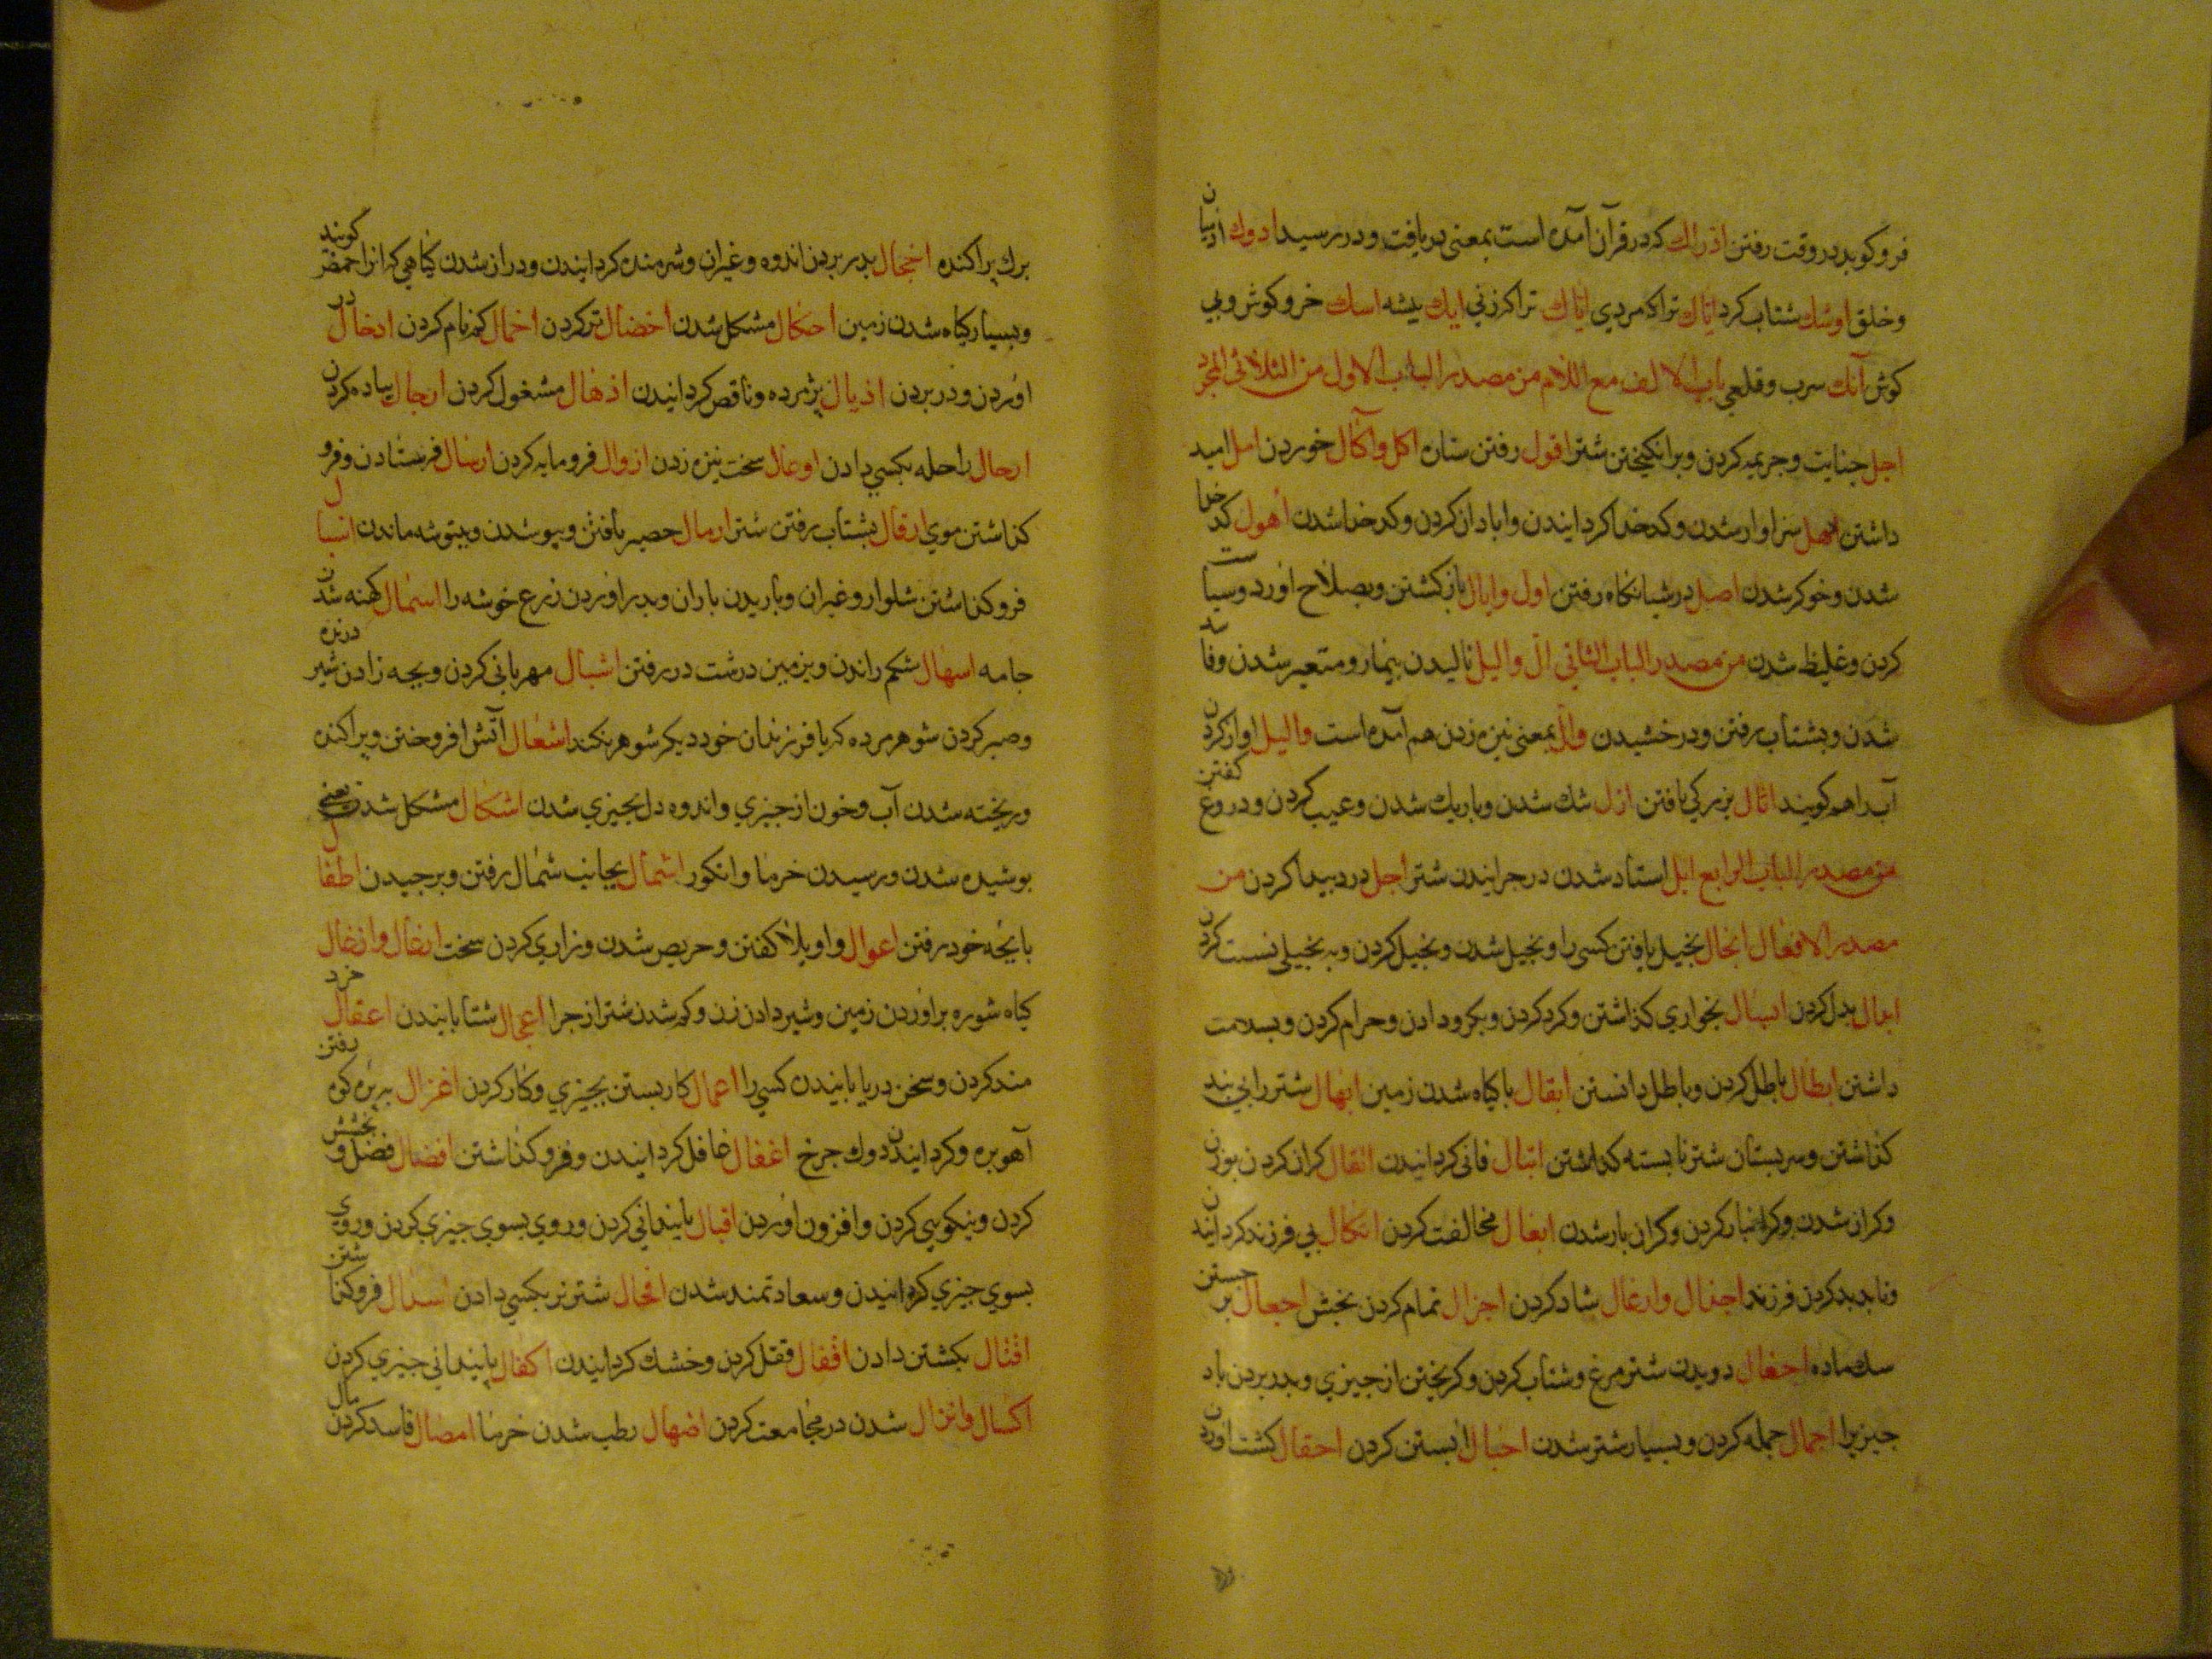 فرو کوبد در وقت رفتن ادراك که در قرآن آمده است بمعنی دریافت و در رسید ادوك
وخلق اوشك شتاب کرد ایاك ترا که مردی ایاك ترا که زنی ایك بیشه اسك خر و کوش وبی
کوش آنك سرب وقلعی باب الالف مع اللام من مصدر الباب الاول من الثلاثی المجرد
اجل جنایت وجریمه کردن وبرانکیختن شتر افول رفتن ستاره اکل واکال خوردن امل امید
داشتن اهل سزاوار شدن وکدخدا کردایندن وابادان کردن وکدخدا شدن اهول کدخدا
شدن وخوکر شدن اصل در شبانکاه رفتن اول وایال بازکشتن وبصلاح اورد وسیاست
کردن وغلیظ شدن من مصدر الباب الثانی ال والیل نالیدن بیمار ومتغیر شدن وفاسد
شدن وبشتاب رفتن ودرخشیدن وال بمعنی نیزه زدن هم آمده است والیل اواز کردن
آب را هم کویند اثال بزرکی یافتن ازل شك شدن وباریك شدن وعیب کردن ودروغ کفتن
من مصدر الباب الرابع ابل استاد شدن در چرانیدن شتر اجل درد پیدا کردن من
مصدر الافعال ابخال بخیل یافتن کسی را وبخیل شدن وبخیل کردن وبه بخیلی نسبت کردن
ابدال بدل کردن ابسال بخواری کذاشتن وکرد کردن وبکرو دادن وحرام کردن وبسلامت
داشتن ابطال باطل کردن وباطل دانستن ابقال باکیاه شدن زمین ابهال شتر را بی بند
کذاشتن وسر پستان شتر نابسته کذاشتن اتبال فانی کردانیدن اثقال کران کردن بوزن
وکران شدن وکرانبار کردن وکران بار شدن ابغال مخالفت کردن اثکال بی فرزند کردانید
وناپدید کردن فرزند اجذال وارغال شاد کردن اجزال تمام کردن بخشش اجعال بر جستن
سك ماده اجفال دویدن شتر مرغ وشتاب کردن وکریختن از چیزی وبدر بردن باد
چیزیرا اجمال جمله کردن وبسیار شتر شدن احبال ابستن کردن احقال کشت اوردن
برك پراکنده اخجال بدر بردن اندوه وغیران وشرمنده کردانیدن ودراز شدن کیاهی که انرا حمض کویند
وبسیار کیاه شدن زمین احکال مشکل شدن اخضال تر کردن اخمال کم نام کردن ادخال در
اوردن ودر بردن اذیال پژمرده وناقص کردانیدن اذهال مشغول کردن ارجال پیاده کردن
ارحال راحله بکسی دادن اوعال سخت نیزه زدن ارذال فرومایه کردن ارسال فرستادن وفرو
کذاشتن موی ارقال بشتاب رفتن شتر ارمال حصیر بافتن وبیو شدن وبیتوشه ماندن اسبال
فروکذاشتن شلوار وغیران وباریدن باران وبدر اوردن زرع خوشه را اسمال کهنه شدن
جامه اسهال شکم راندن وبزمین درشت در رفتن اشبال مهربانی کردن وبچه زادن شیر درنده
وصبر کردن شوهر مرده که بافرزندان خود دیکر شوهر نکند اشعال آتش افروختن وپراکنده
وریخته شدن آب وخون از چیزی واندوه دل بچیزی شدن اشکال مشکل شدن
پوشیده شدن ورسیدن خرما وانکور اشمال بجانب شمال رفتن وبرچیدن اطفال
بابچه خود رفتن اعوال واویلا کفتن وحریص شدن وزاری کردن سخت ارغال وازغال
کیاه شوره براوردن زمین وشیر دادن زن وکم شدن شتر از چرا اعجال شتابانیدن اعقال خرد
مند کردن وسخن دریابانیدن کسی را اعمال کار بستن بچیزی وکار کردن اغزال ببریزه کوه رفتن
آهوبره وکردانیدن دوك چرخ اغفال غافل کردانیدن وفروکذاشتن افضال فضل وبخشش
کردن ونیکویی کردن وافزون اوردن اقبال پایندانی کردن وروی بسوی چیزی کردن وروی
بسوی چیزی کردانیدن وسعادتمند شدن افحال شتر نر بکسی دادن اسدال فروکذاشتن
اقتال بکشتن دادن اقفال قفل کردن وخشك کردانیدن اکفال پایندانی چیزی کردن
اکسال وانزال شدن در مجامعت کردن اضهال رطب شدن خرما امصال فاسد کردن مال